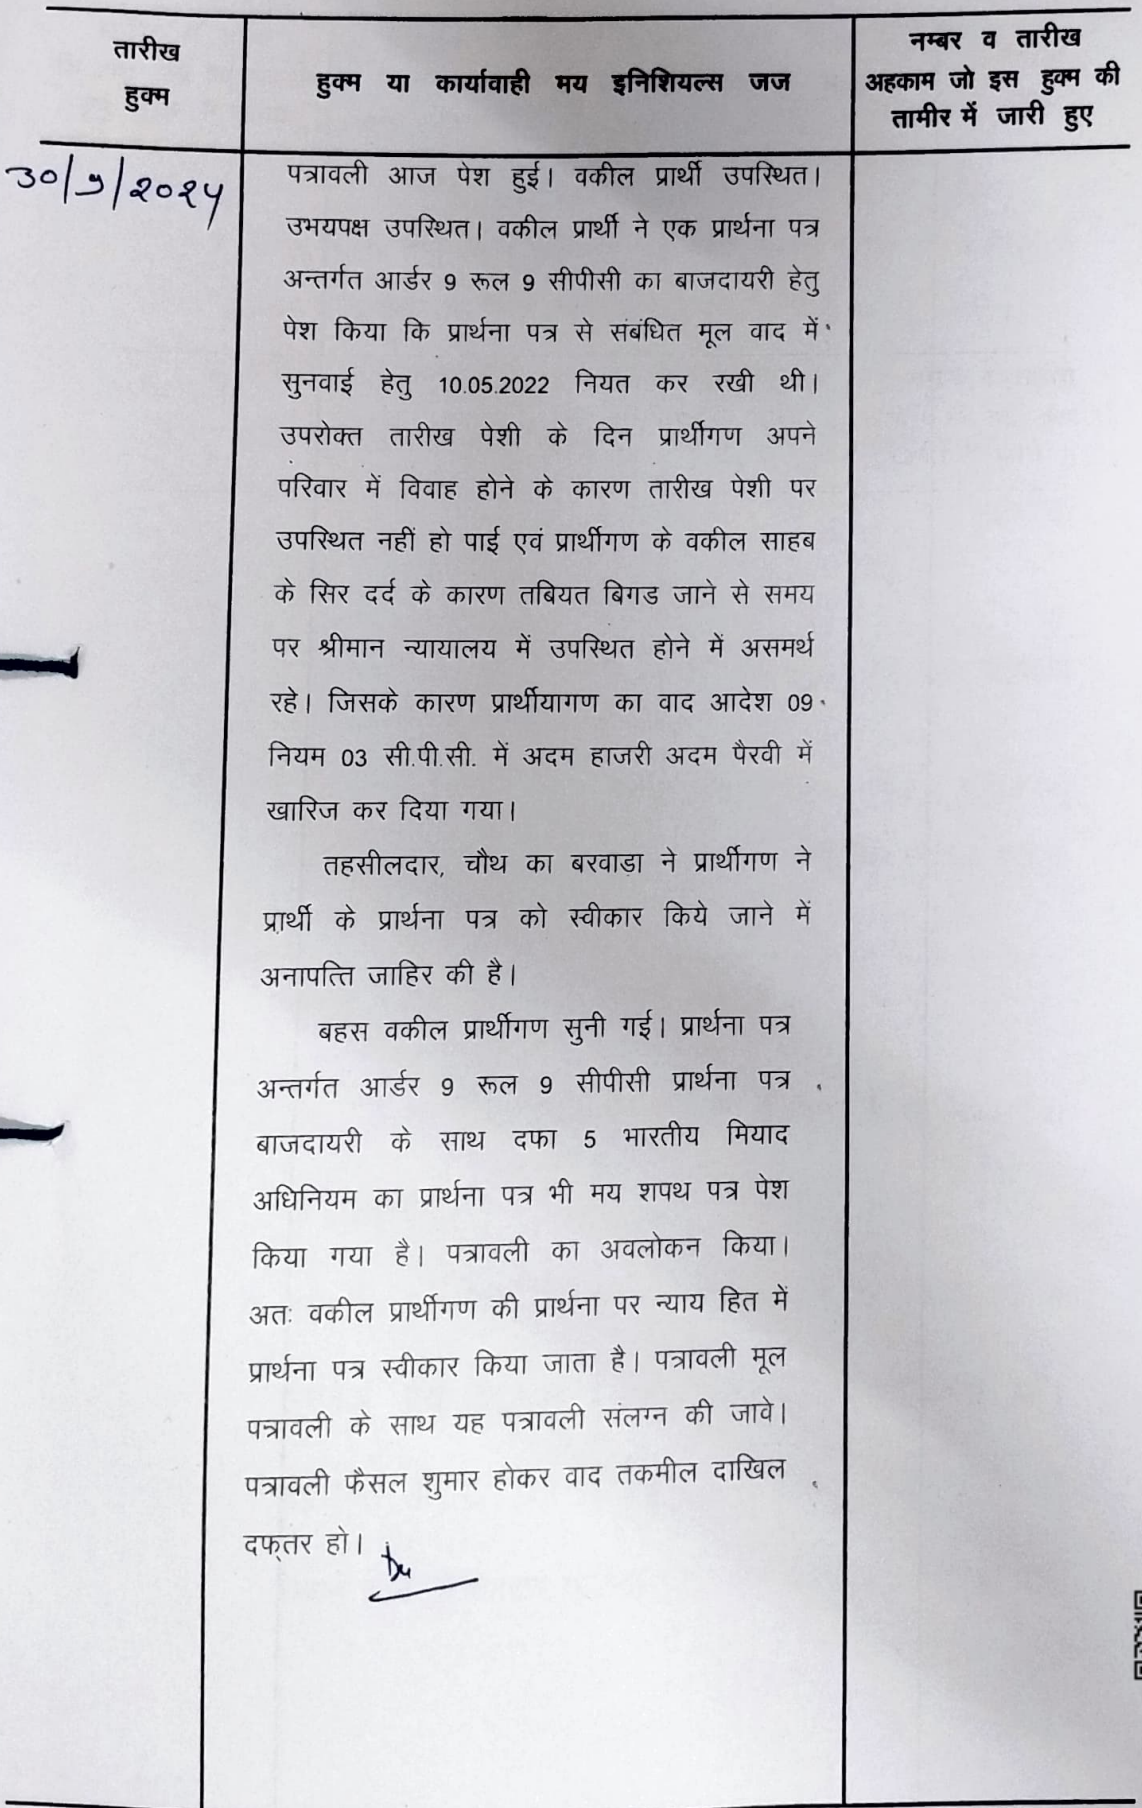 तारीख
हुक्म
हुक्म या कार्यावाही मय इनिशियल्स जज
नम्बर व तारीख
अहकाम जो इस हुक्म की
तामीर में जारी हुए
पत्रावली आज पेश हुई। वकील प्रार्थी उपस्थित।
उभयपक्ष उपस्थित। वकील प्रार्थी ने एक प्रार्थना पत्र
अन्तर्गत आर्डर 9 रूल 9 सीपीसी का बाजदायरी हेतु
पेश किया कि प्रार्थना पत्र से संबंधित मूल वाद में
सुनवाई हेतु 10.05.2022 नियत कर रखी थी।
उपरोक्त तारीख पेशी के दिन प्रार्थीगण अपने
परिवार में विवाह होने के कारण तारीख पेशी पर
उपस्थित नहीं हो पाई एवं प्रार्थीगण के वकील साहब
के सिर दर्द के कारण तबियत बिगड जाने से समय
पर श्रीमान न्यायालय में उपस्थित होने में असमर्थ
रहे। जिसके कारण प्रार्थीयागण का वाद आदेश 09
नियम 03 सी.पी.सी. में अदम हाजरी अदम पैरवी में
खारिज कर दिया गया।
तहसीलदार, चौथ का बरवाड़ा ने प्रार्थीगण ने
प्रार्थी के प्रार्थना पत्र को स्वीकार किये जाने में
अनापत्ति जाहिर की है।
बहस वकील प्रार्थीगण सुनी गई। प्रार्थना पत्र
अन्तर्गत आर्डर 9 रूल 9 सीपीसी प्रार्थना पत्र
बाजदायरी के साथ दफा 5 भारतीय मियाद
अधिनियम का प्रार्थना पत्र भी मय शपथ पत्र पेश
किया गया है। पत्रावली का अवलोकन किया।
अतः वकील प्रार्थीगण की प्रार्थना पर न्याय हित में
प्रार्थना पत्र स्वीकार किया जाता है। पत्रावली मूल
पत्रावली के साथ यह पत्रावली संलग्न की जावे।
पत्रावली फैसल शुमार होकर वाद तकमील दाखिल
दफ्तर हो।